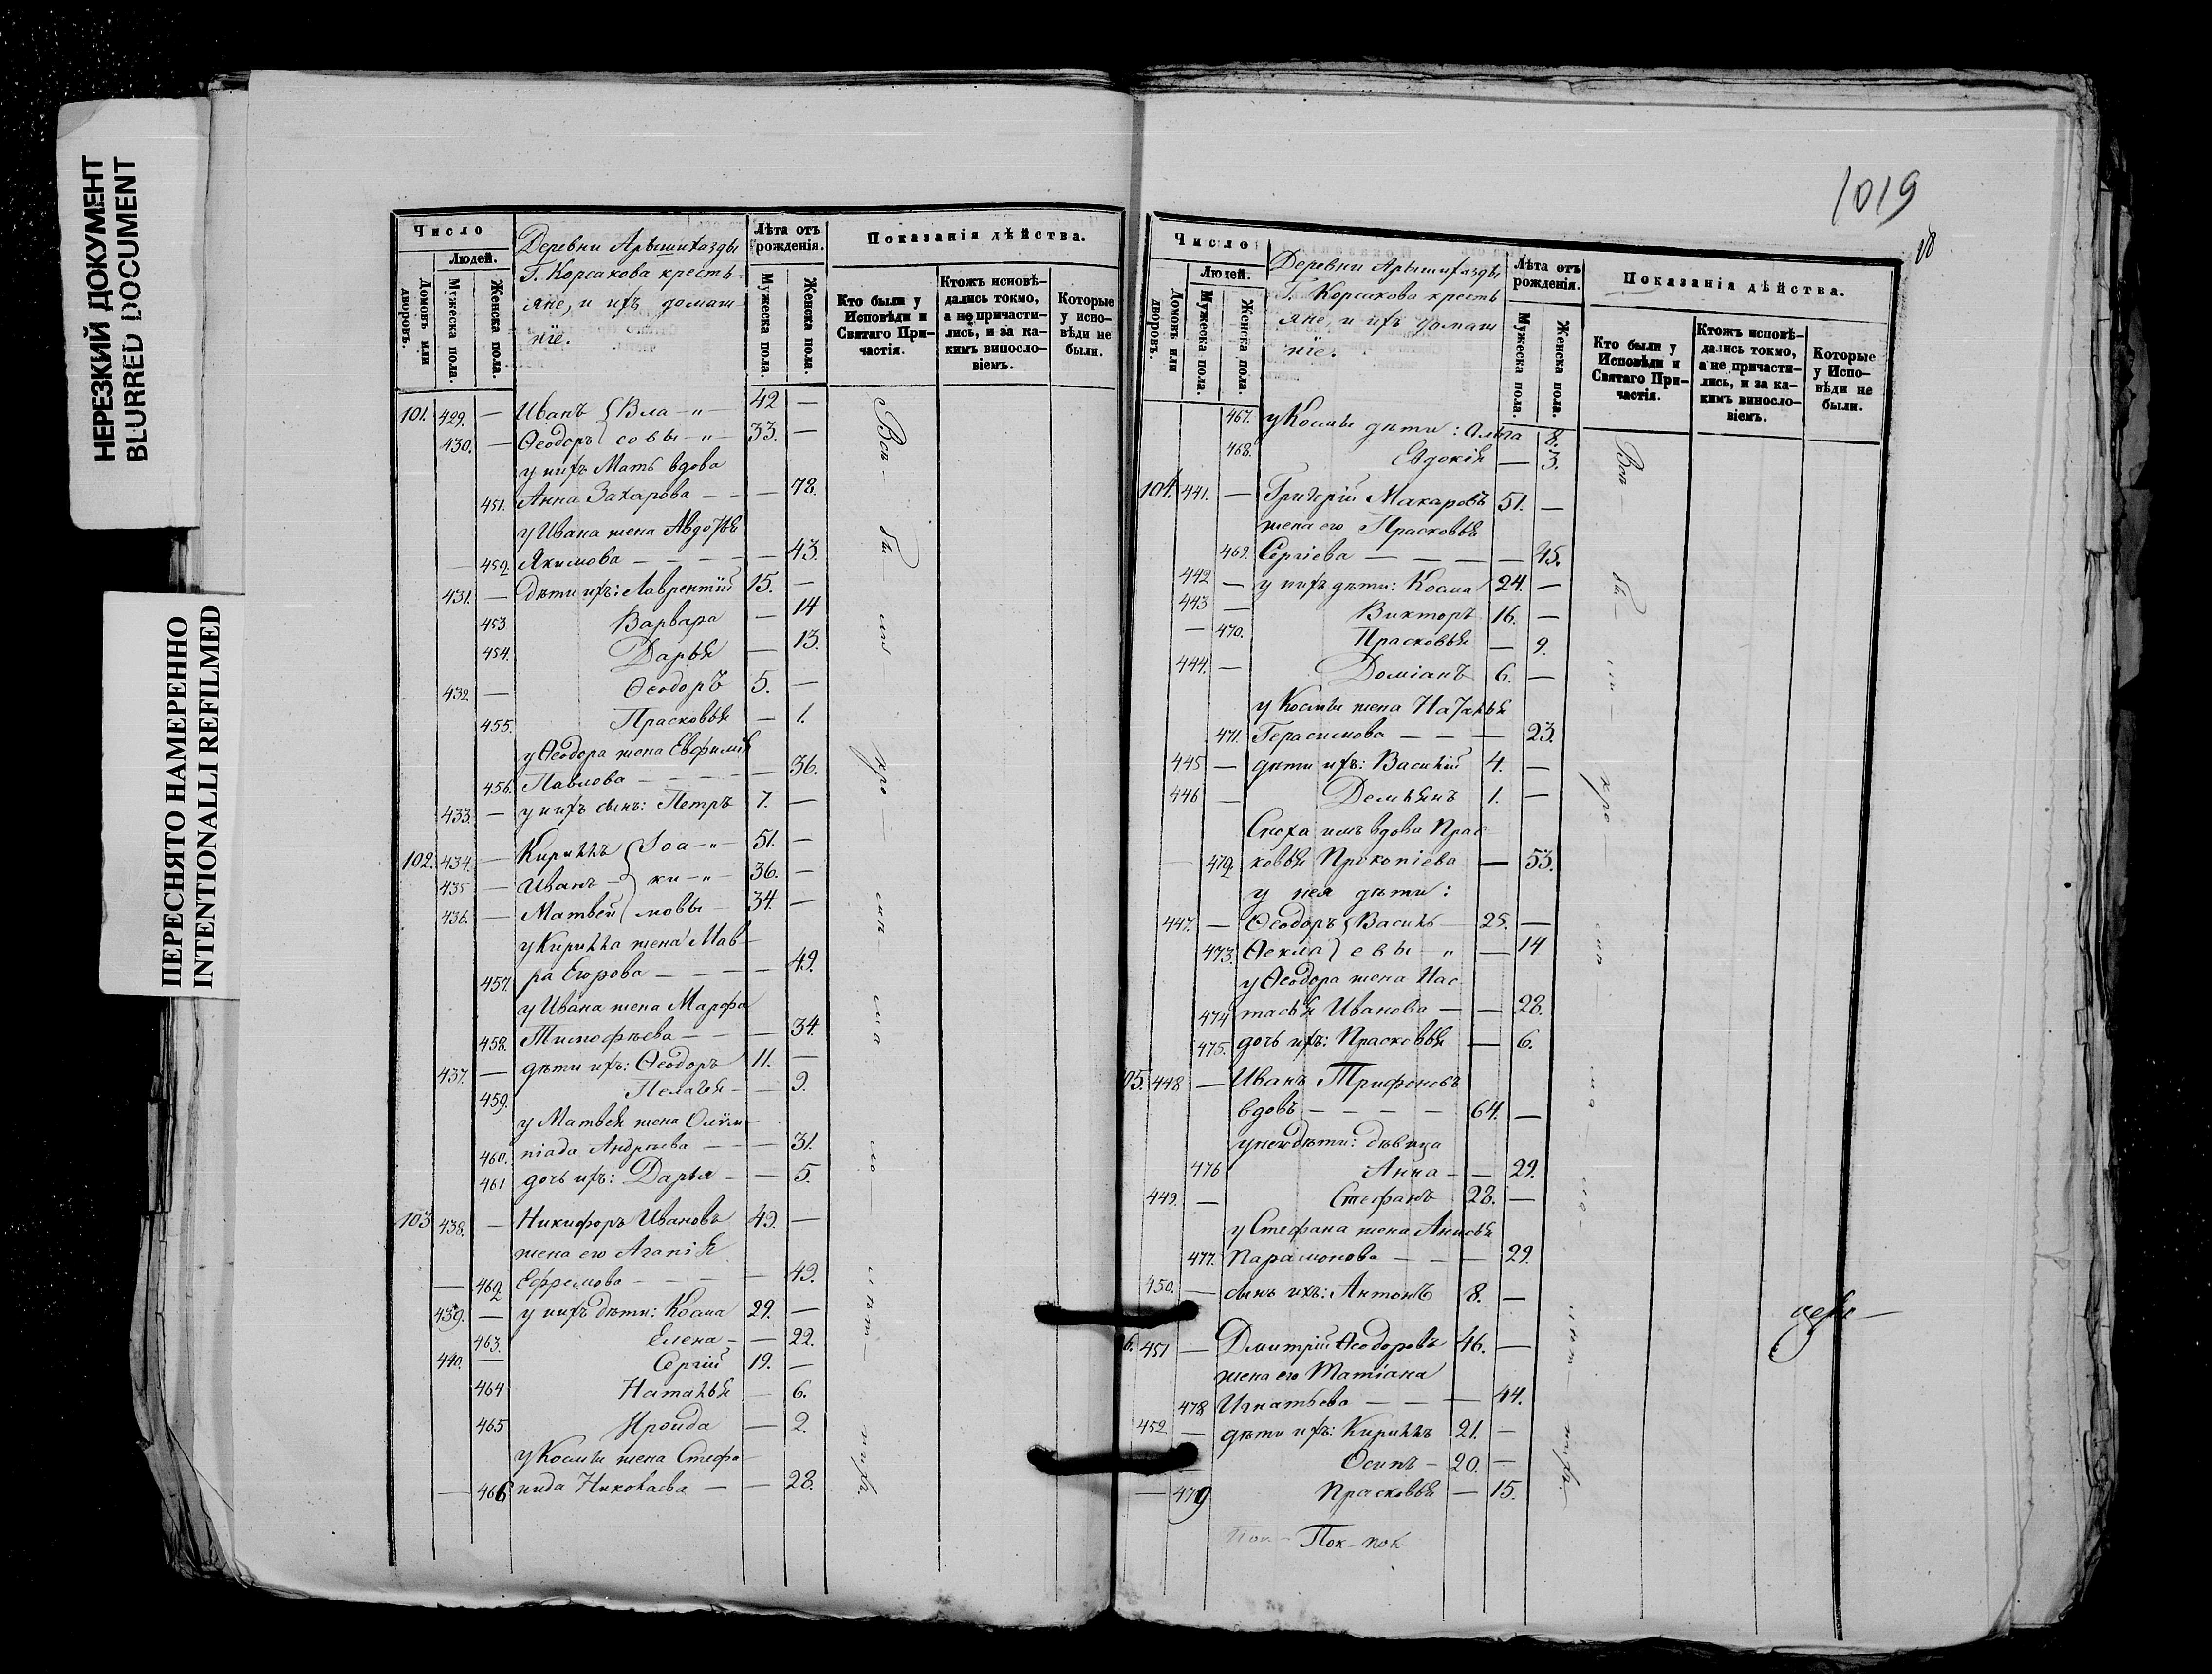 НЕРЕЗКИЙ ДОКУМЕНТ
BLURRED DOCUMENT
ПЕРЕСНЯТО НАМЕРЕННО
INTENTIONALLI REFILMED
Число
Людей.
Домовъ или дворовъ.
Мужеска пола.
Женска пола.
Деревни Арышихазды
Г. Корсакова кресть-
яне, и ихъ домаш-
нiе.
Лѣта отъ рожденія.
Мужеска пола.
Женска пола.
Показанія дѣйства.
Кто были у Исповѣди и Святаго Причастія.
Ктожъ исповѣ-
дались токмо,
а не причасти-
лись, и за ка-
кимъ виносло-
віемъ.
Которые
у испо-
вѣди не
были.
101. 429. — Иванъ { Вла - „ — 42 —
430. — Ѳеодоръ { совы - „ — 33. —
у нихъ Мать вдова
451. Анна Захарова — — — 78.
у Ивана жена Авдотья
— 452. Якимова — — — — 43.
431. — дѣти ихъ: Лаврентій 15. —
453 Варвара — 14
454. Дарья — 13.
432 — Ѳеодоръ 5. —
455. Прасковья — 1.
у Ѳеодора жена Евфимія
456. Павлова — — — — 36.
433. — у нихъ сынъ: Петръ 7. —
102. 434. — Кириллъ { Іоа - „ — 51. —
435 — Иванъ — } ки - „ — 36. —
436. — Матвей { мовы — 34. —
у Кирилла жена Мав-
457. ра Егорова — — — — 49.
у Ивана жена Марфа
458. Тимофѣева — — — 34.
437. — дѣти ихъ: Ѳеодоръ 11. —
459. Пелагея — — 9.
у Матвея жена Олим-
460. піада Андрѣева — — — 31.
461 дочь ихъ: Дарья — — 5.
103 438. — Никифоръ Ивановъ 49. —
жена его Агапія
— 462 Ефремова — — — — 49.
439. — у нихъ дѣти: Косма 29. —
463. Елена — — 22.
440. — Сергій 19. —
464 Наталья — 6.
465 Ироида — 2.
у Космы жена Стефа-
— 466 нида Николаева — — 28.
Всѣ — бы — ли — хри — сти — 
1019
18
Число
Людей.
Домовъ или дворовъ.
Мужеска пола
Женска пола.
Деревни Арышихазды
Г. Корсакова кресть
яне, и ихъ домаш
нiе.
Лѣта отъ рожденія.
Мужеска пола.
Женска пола.
Показанія дѣйства.
Кто были у Исповѣди и Святаго Причастія.
Ктожъ исповѣ-
дались токмо,
а не причасти-
лись, и за ка-
кимъ винословіемъ.
Которые
у Испо-
вѣди не
были.
467. у Космы дѣти: Ольга 8.
468. Евдокія — 3.
104. 441. — Григорій Макаровъ 51. —
жена его Прасковья
469. Сергіева — — — — 45.
442 — у нихъ дѣти: Косма 24. —
443 — Викторъ 16. —
— 470. Прасковья — 9.
444. — Доміанъ 6. —
у Космы жена Наталья
471. Герасимова — — — 23.
445 — дѣти ихъ: Василій 4. —
446 — Демьянъ 1. —
Сноха имъ вдова Прас
— 472. ковья Прокопіева — 53.
у нея дѣти:
447. — Ѳеодоръ { Василь — 25. —
473. Ѳекла } евы - „ — 14
у Ѳеодора жена Нас
474 тасья Иванова — — 28.
475. дочь ихъ: Прасковья — 6.
05. 448 — Иванъ Трифоновъ
вдовъ — — — — 64. —
у ней дѣти: дѣвица
476 Анна — — 29.
449. — Стефанъ 28. —
у Стефана жена Анисья
477. Парамонова — — — 29.
450. — сынъ ихъ: Антонъ 8. —
6. 451 — Дмитрій Ѳеодоровъ 46. —
жена его Татіана
478 Игнатьева — — — 44.
452 — дѣти ихъ: Кириллъ 21. —
— Осипъ — 20. —
— 479 Прасковья — 15.
Пок — Пок — пок